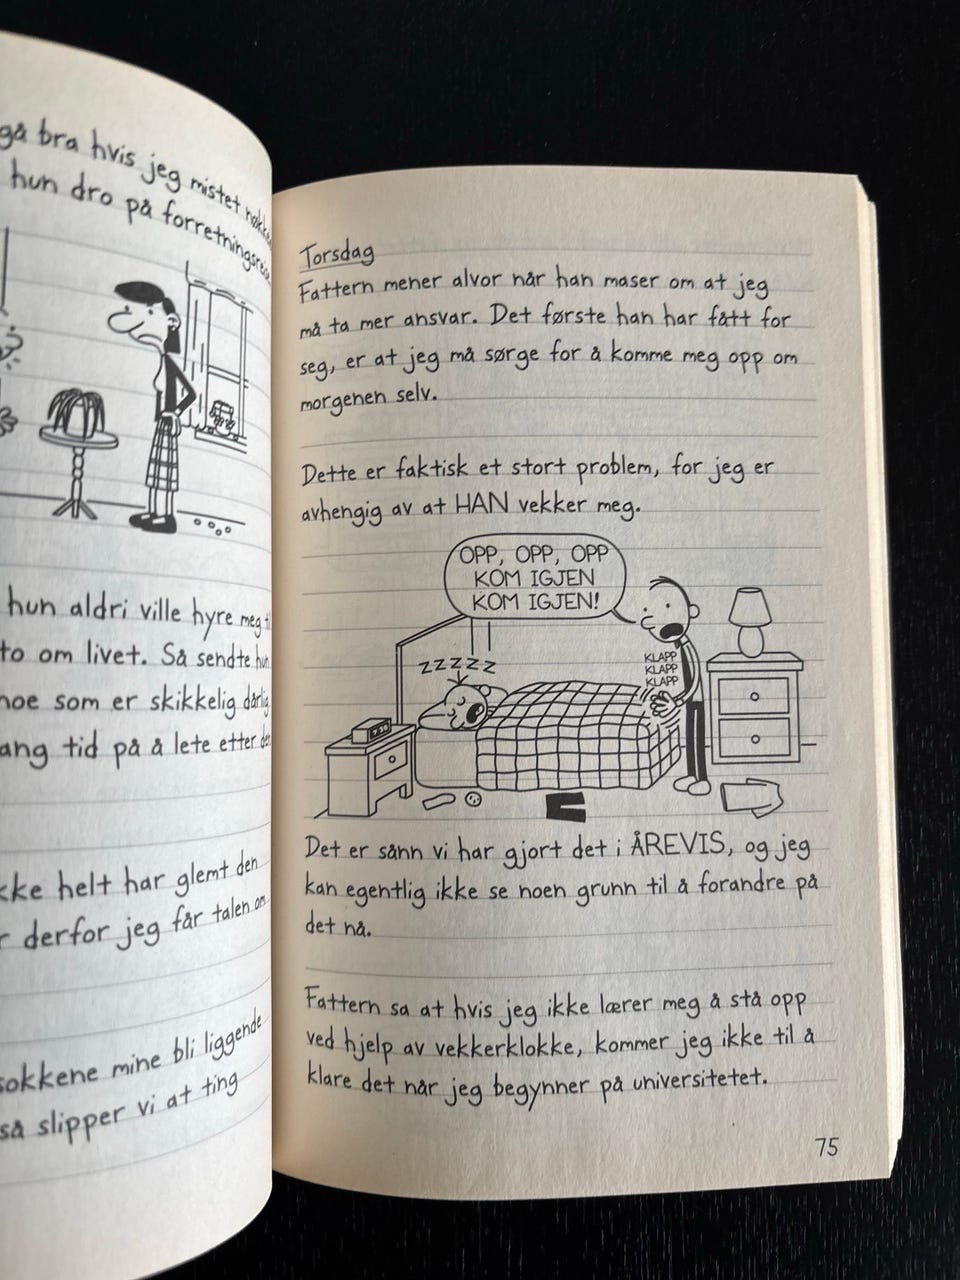 gå bra hvis jeg mistet
hun dro på forretningsreise
hun aldri ville hyre meg
to om livet. Så sendte hun
noe som er skikkelig dårlig
tid på å lete etter
helt har glemt den
derfor jeg får talen om
sokkene mine bli liggende
så slipper vi at ting
Torsdag
Fattern mener alvor når han maser om at jeg
må ta mer ansvar. Det første han har fått for
seg, er at jeg må sørge for å komme meg opp om
morgenen selv.
Dette er faktisk et stort problem, for jeg er
avhengig av at HAN vekker meg.
OPP, OPP, OPP
KOM IGJEN
KOM IGJEN!
ZZZZZ
KLAPP
KLAPP
KLAPP
Det er sånn vi har gjort det i ÅREVIS, og jeg
kan egentlig ikke se noen grunn til å forandre på
det nå.
Fattern sa at hvis jeg ikke lærer meg å stå opp
ved hjelp av vekkerklokke, kommer jeg ikke til å
klare det når jeg begynner på universitetet.
75